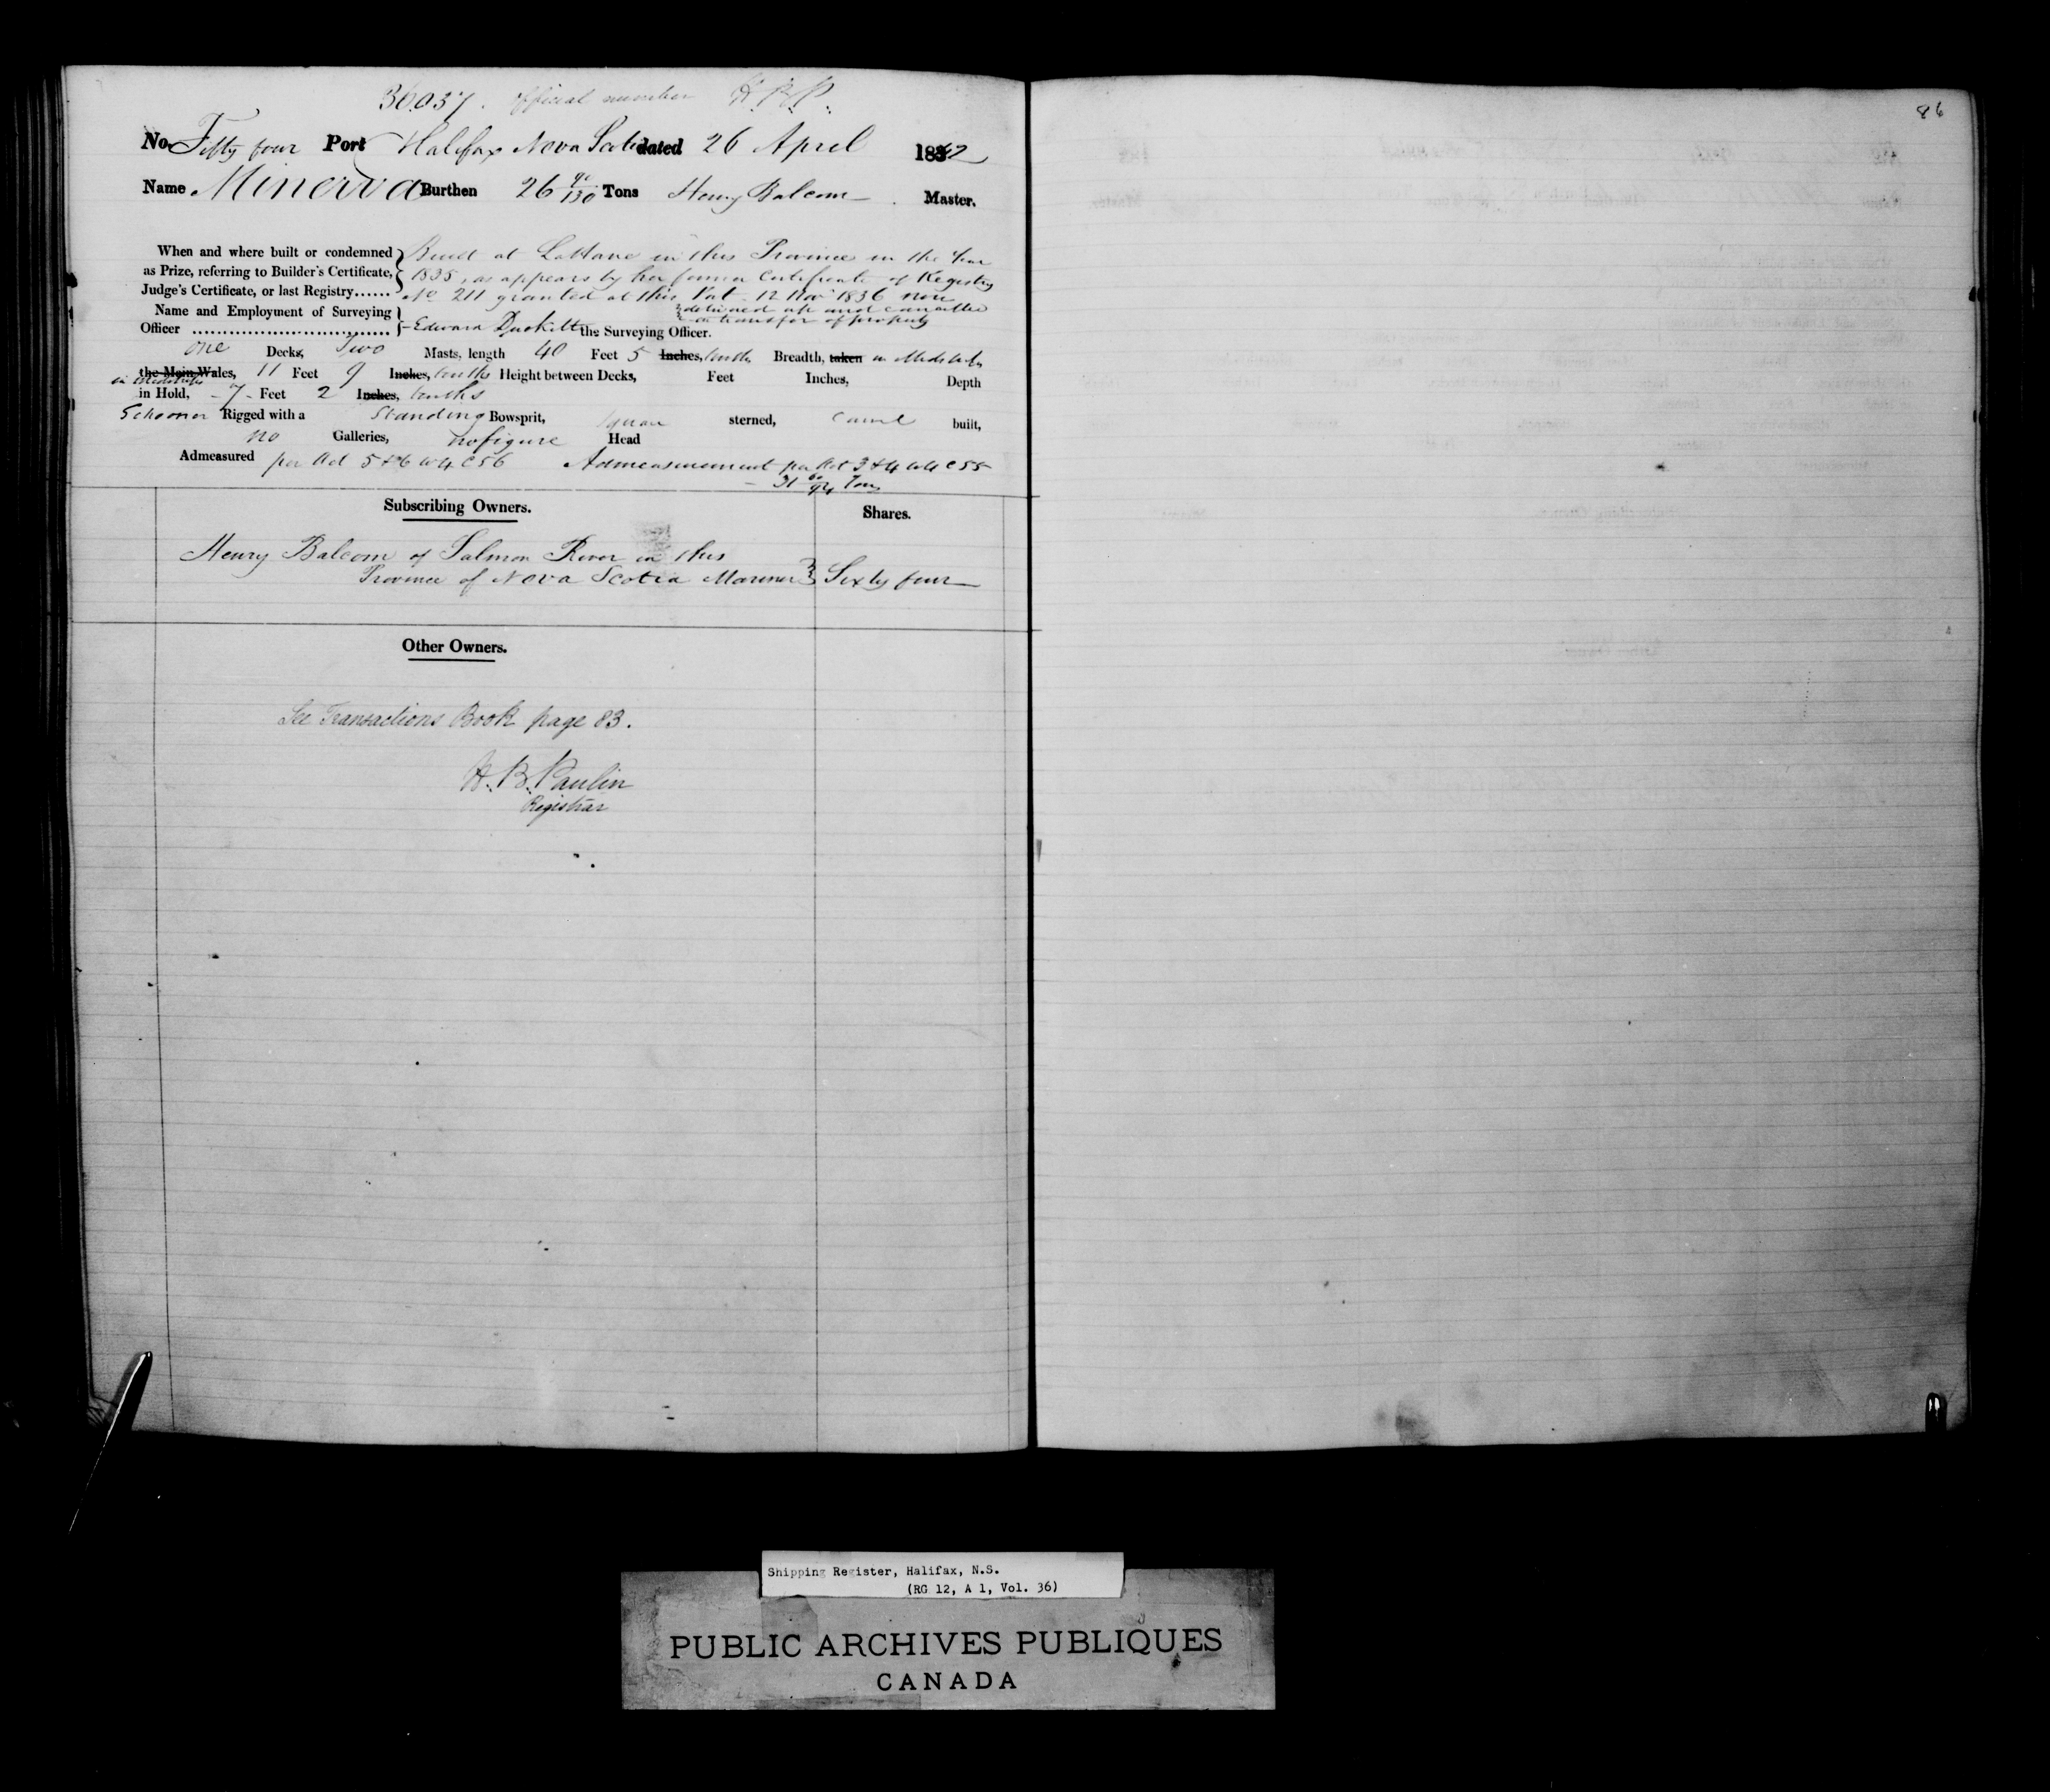 36.037. official number H.B.P.
86
No. Fifty four Port Halifax Nova Scotia dated 26 April 1842
Name Minerva Burthen 26 90/130 Tons Henry Balcom Master.
When and where built or condemned as Prize, referring to Builder's Certificate, Judge's Certificate, or last Registry......
Built at LaHave in this Province in the Year
1835, as appears by her former Certificate of Registry
No 211 granted at this Port 12 Nov 1836 now
delivered up and cancelled
on transfer of property
Name and Employment of Surveying
Officer .............................. Edward Duckett the Surveying Officer.
one Decks, Two Masts, length 40 Feet 5 Inches, tenths Breadth, taken in Midships
the Main Wales, 11 Feet 9 Inches, tenths Height between Decks, Feet Inches, Depth
in Midships
in Hold, - 7 - Feet 2 Inches, tenths
Schooner Rigged with a Standing Bowsprit, Square sterned, Carvel built,
no Galleries, no figure Head
Admeasured per Act 5 & 6 W4 C56 Admeasurement per Act 3 & 4 W4 C55
- 31 60/94 Tons
Subscribing Owners. Shares.
Henry Balcom of Salmon River in this
Province of Nova Scotia Mariner Sixty four
Other Owners.
See Transactions Book page 83.
H.B. Paulin
Registrar
Shipping Register, Halifax, N.S.
(RG 12, A 1, Vol. 36)
PUBLIC ARCHIVES PUBLIQUES
CANADA